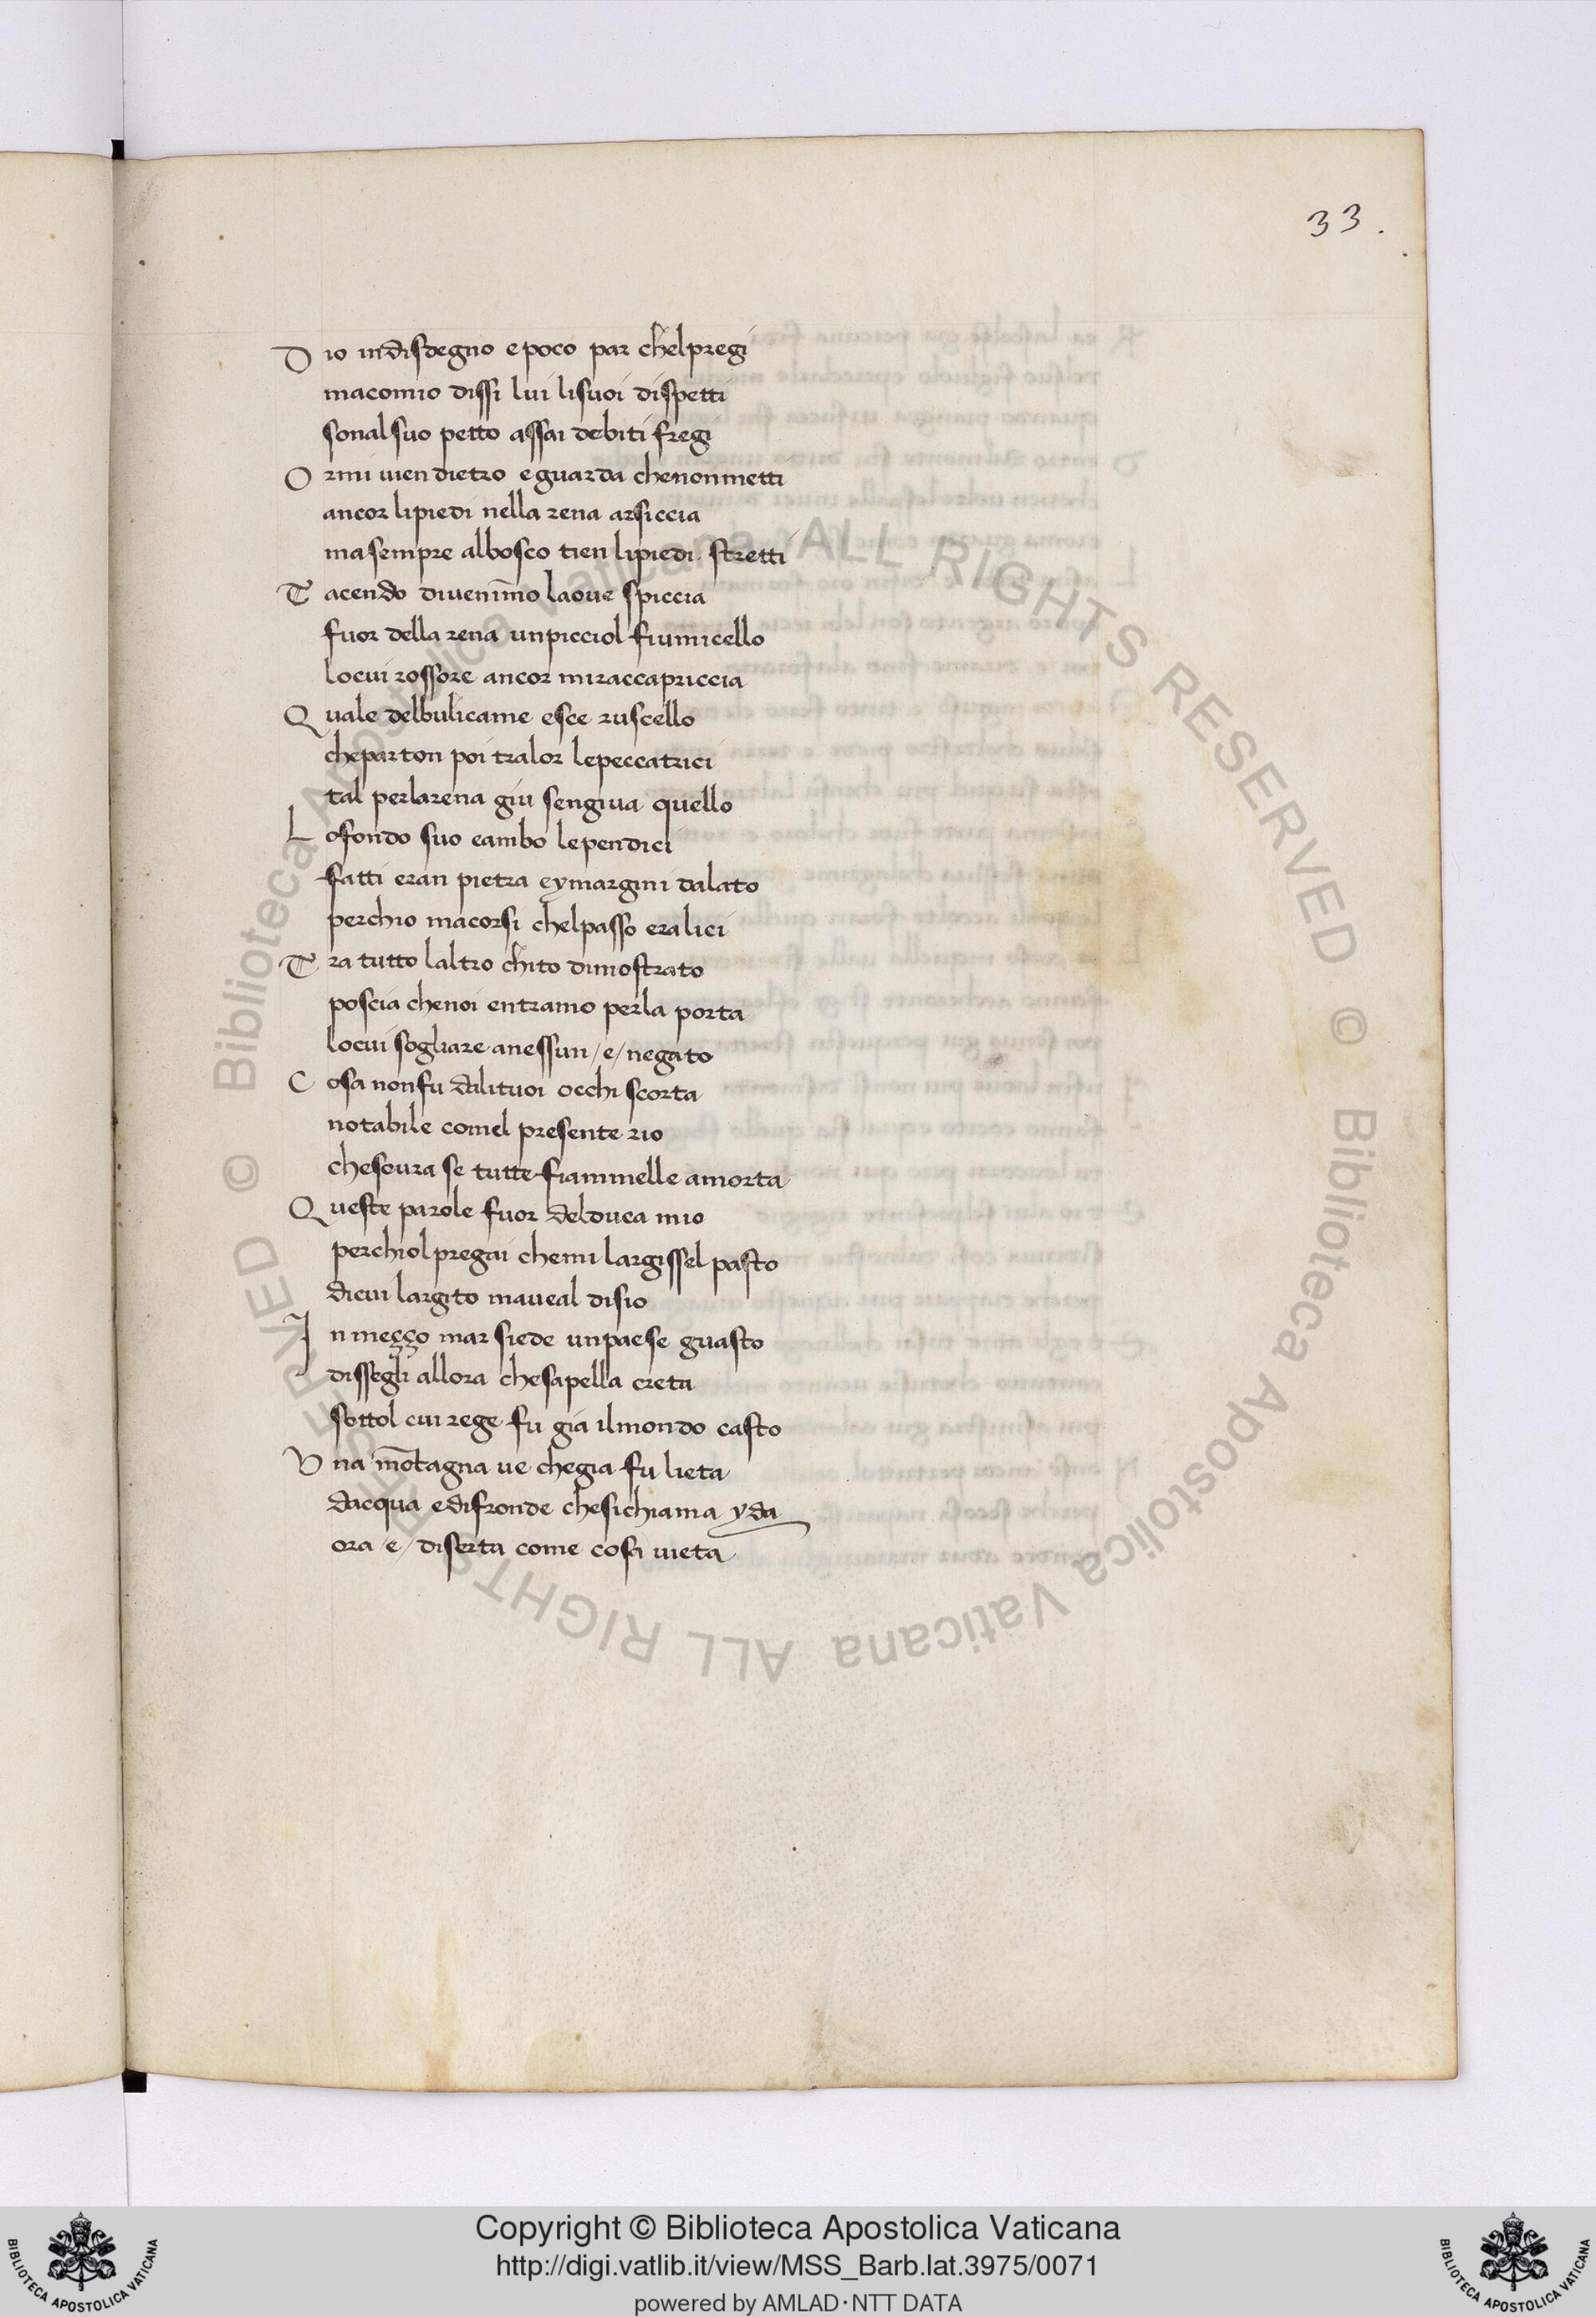 33.
D io indisdegno epoco par chelpregi
macomio dissi lui lisuoi dispetti
sonalsuo petto assai debiti fregi
O rmi vien dietro eguarda chenonmetti
ancor lipiedi nella rena arsiccia
masempre albosco tien lipiedi stretti
T acendo divenim̄o laove spiccia
fuor della rena unpicciol fiumicello
locui rossore ancor miraccapriccia
Q uale delbulicame esce ruscello
cheparton poi tralor lepeccatrici
tal perlarena giu sengiva quello
L ofondo suo eambo lependici
fatti eran pietra eymargini dalato
perchio macorsi chelpasso eralici
T ra tutto laltro chito dimostrato
poscia chenoi entramo perla porta
locui sogliare anessun/e/negato
C osa nonfu dalituoi occhi scorta
notabile comel presente rio
chesovra se tutte fiammelle amorta
Q ueste parole fuor delduca mio
perchiolpregai chemi largissel pasto
dicui largito maveal disio
I n meçço mar siede unpaese guasto
dissegli allora chesapella creta
sottol cui rege fu gia ilmondo casto
V na mōtagna ve chegia fu lieta
dacqua edifronde chesichiama yda
ora/e/diserta come cosa vieta
© Biblioteca Apostolica Vaticana ALL RIGHTS RESERVED © Biblioteca Apostolica Vaticana ALL RIGHTS RESERVED
BIBLIOTECA APOSTOLICA VATICANA
Copyright © Biblioteca Apostolica Vaticana
http://digi.vatlib.it/view/MSS_Barb.lat.3975/0071
powered by AMLAD·NTT DATA
BIBLIOTECA APOSTOLICA VATICANA